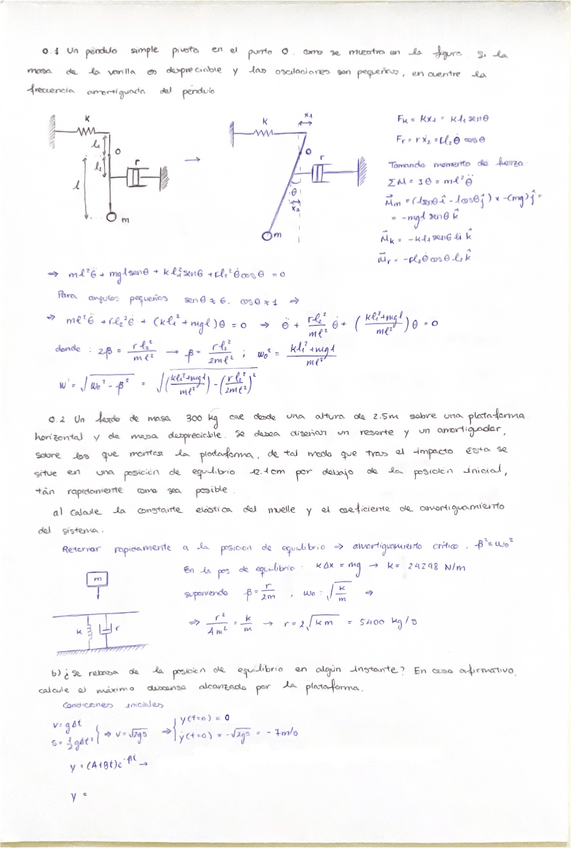 0.1 Un péndulo simple pivota en el punto O, como se muestra en la figura. Si la
masa de la varilla es despreciable y las oscilaciones son pequeñas, encuentre la
frecuencia amortiguada del péndulo
K
l₁
O
l₂
l
r
m
→
x₁
K
O
r
θ
x₂
m
F_K = Kx₁ = Kl₁ senθ
F_r = rẋ₂ = rl₂θ̇ cosθ
Tomando momento de fuerza
ΣM = Iθ̈ = ml²θ̈
M⃗_m = (lsenθ î - lcosθ ĵ) × -(mg) ĵ =
= -mgl senθ k̂
M⃗_K = -Kl₁ senθ l₁ k̂
M⃗_r = -rl₂θ̇ cosθ l₂ k̂
⇒ ml²θ̈ + mgl senθ + Kl₁² senθ + rl₂² θ̇ cosθ = 0
Para angulos pequeños senθ ≈ θ, cosθ ≈ 1 ⇒
⇒ ml²θ̈ + rl₂²θ̇ + (Kl₁² + mgl)θ = 0 ⇒ θ̈ + rl₂²/ml² θ̇ + (Kl₁² + mgl / ml²) θ = 0
donde: 2β = rl₂²/ml² → β = rl₂²/2ml² ; ω₀² = Kl₁² + mgl / ml²
ω' = √(ω₀² - β²) = √((Kl₁² + mgl / ml²) - (rl₂²/2ml²)²)
0.2 Un fardo de masa 300 kg cae desde una altura de 2.5m sobre una plataforma
horizontal y de masa despreciable. Se desea diseñar un resorte y un amortiguador,
sobre los que montar la plataforma, de tal modo que tras el impacto esta se
situe en una posición de equilibrio 12.1cm por debajo de la posición inicial,
tán rapidamente como sea posible.
a) Calcule la constante elástica del muelle y el coeficiente de amortiguamiento
del sistema.
Retornar rapidamente a la posicion de equilibrio → amortiguamiento critico. β² = ω₀²
m
K
r
En la pos de equilibrio: KΔx = mg → K = 24298 N/m
suponiendo β = r/2m , ω₀ = √(K/m) ⇒
⇒ r²/4m² = K/m → r = 2√(Km) = 5400 kg/s
b) ¿Se rebasa de la posición de equilibrio en algún instante? En caso afirmativo,
calcule el máximo descenso alcanzado por la plataforma.
Condiciones iniciales
v = gΔt
s = ½gΔt² } ⇒ v = √2gs ⇒ { y(t=0) = 0
ẏ(t=0) = -√2gs = -7m/s
y = (A+Bt)e^-βt →
y =